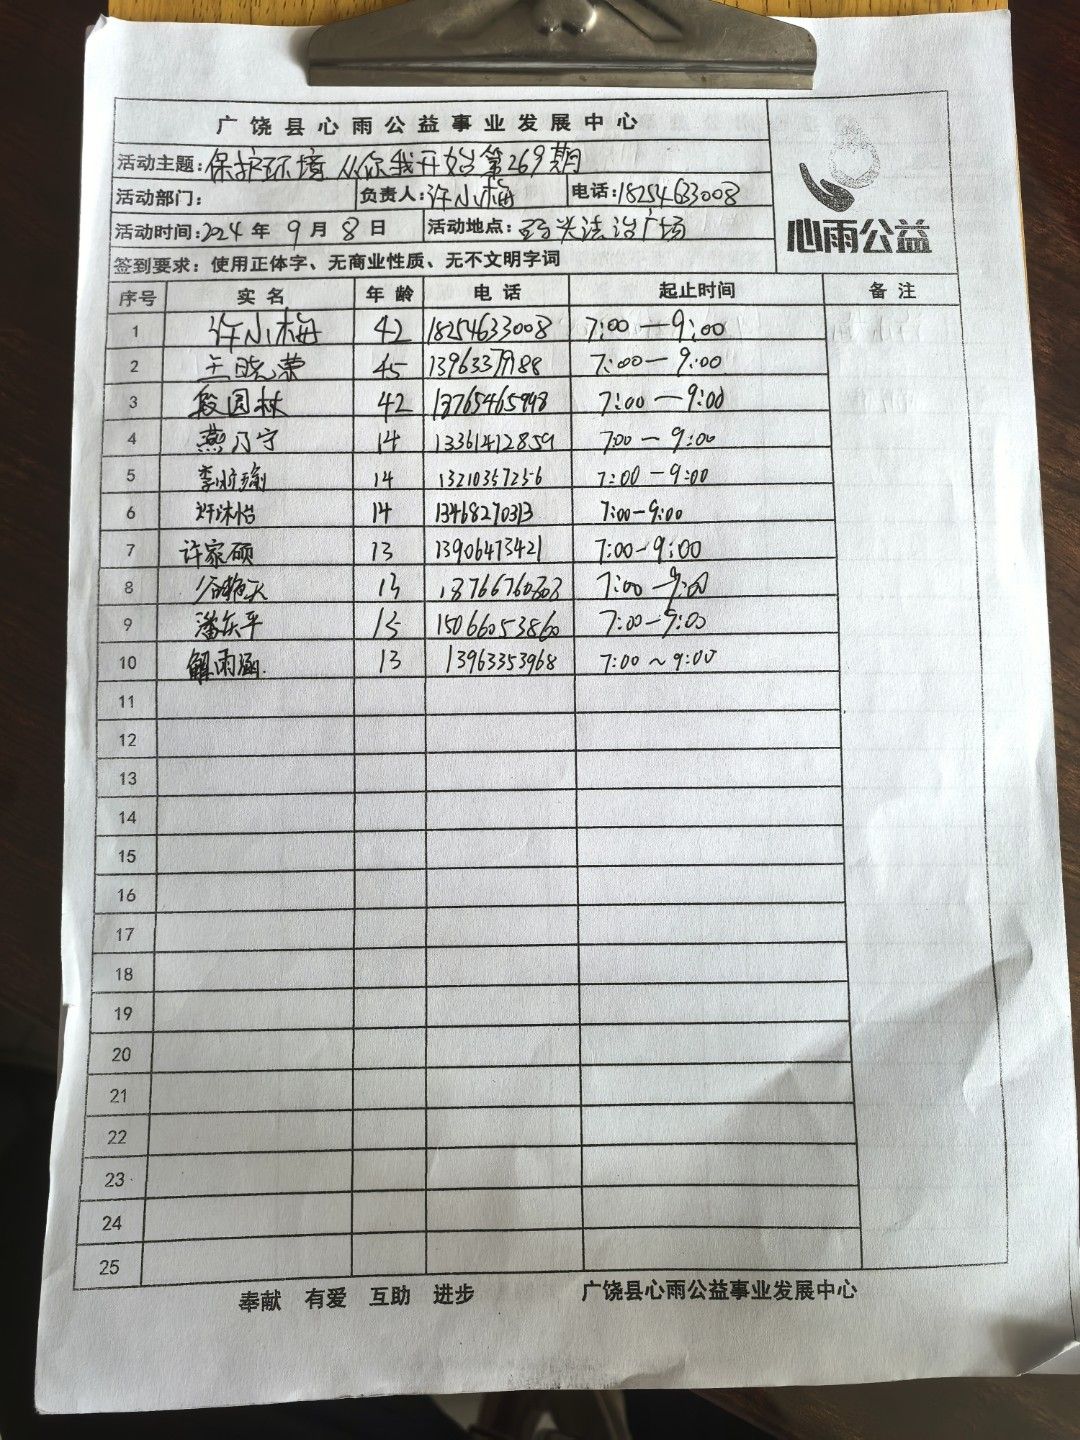 广饶县心雨公益事业发展中心
活动主题：保护环境 从你我开始第269期
活动部门： 负责人：许小梅 电话：18254633008
活动时间：2024年9月8日 活动地点：法治广场
心雨公益
签到要求：使用正体字、无商业性质、无不文明字词
序号 实名 年龄 电话 起止时间 备注
1 许小梅 42 18254633008 7:00—9:00
2 王晓荣 45 7:00—9:00
3 段园林 42 7:00—9:00
4 燕乃宁 14 13361412859 7:00—9:00
5 14 7:00—9:00
6 许沐怡 14 13468270313 7:00-9:00
7 许家硕 13 13906473421 7:00-9:00
8 13 7:00—9:00
9 潘东平 15066053860 7:00-9:00
10 解雨涵. 13 13963353968 7:00～9:00
11
12
13
14
15
16
17
18
19
20
21
22
23
24
25
奉献 有爱 互助 进步 广饶县心雨公益事业发展中心